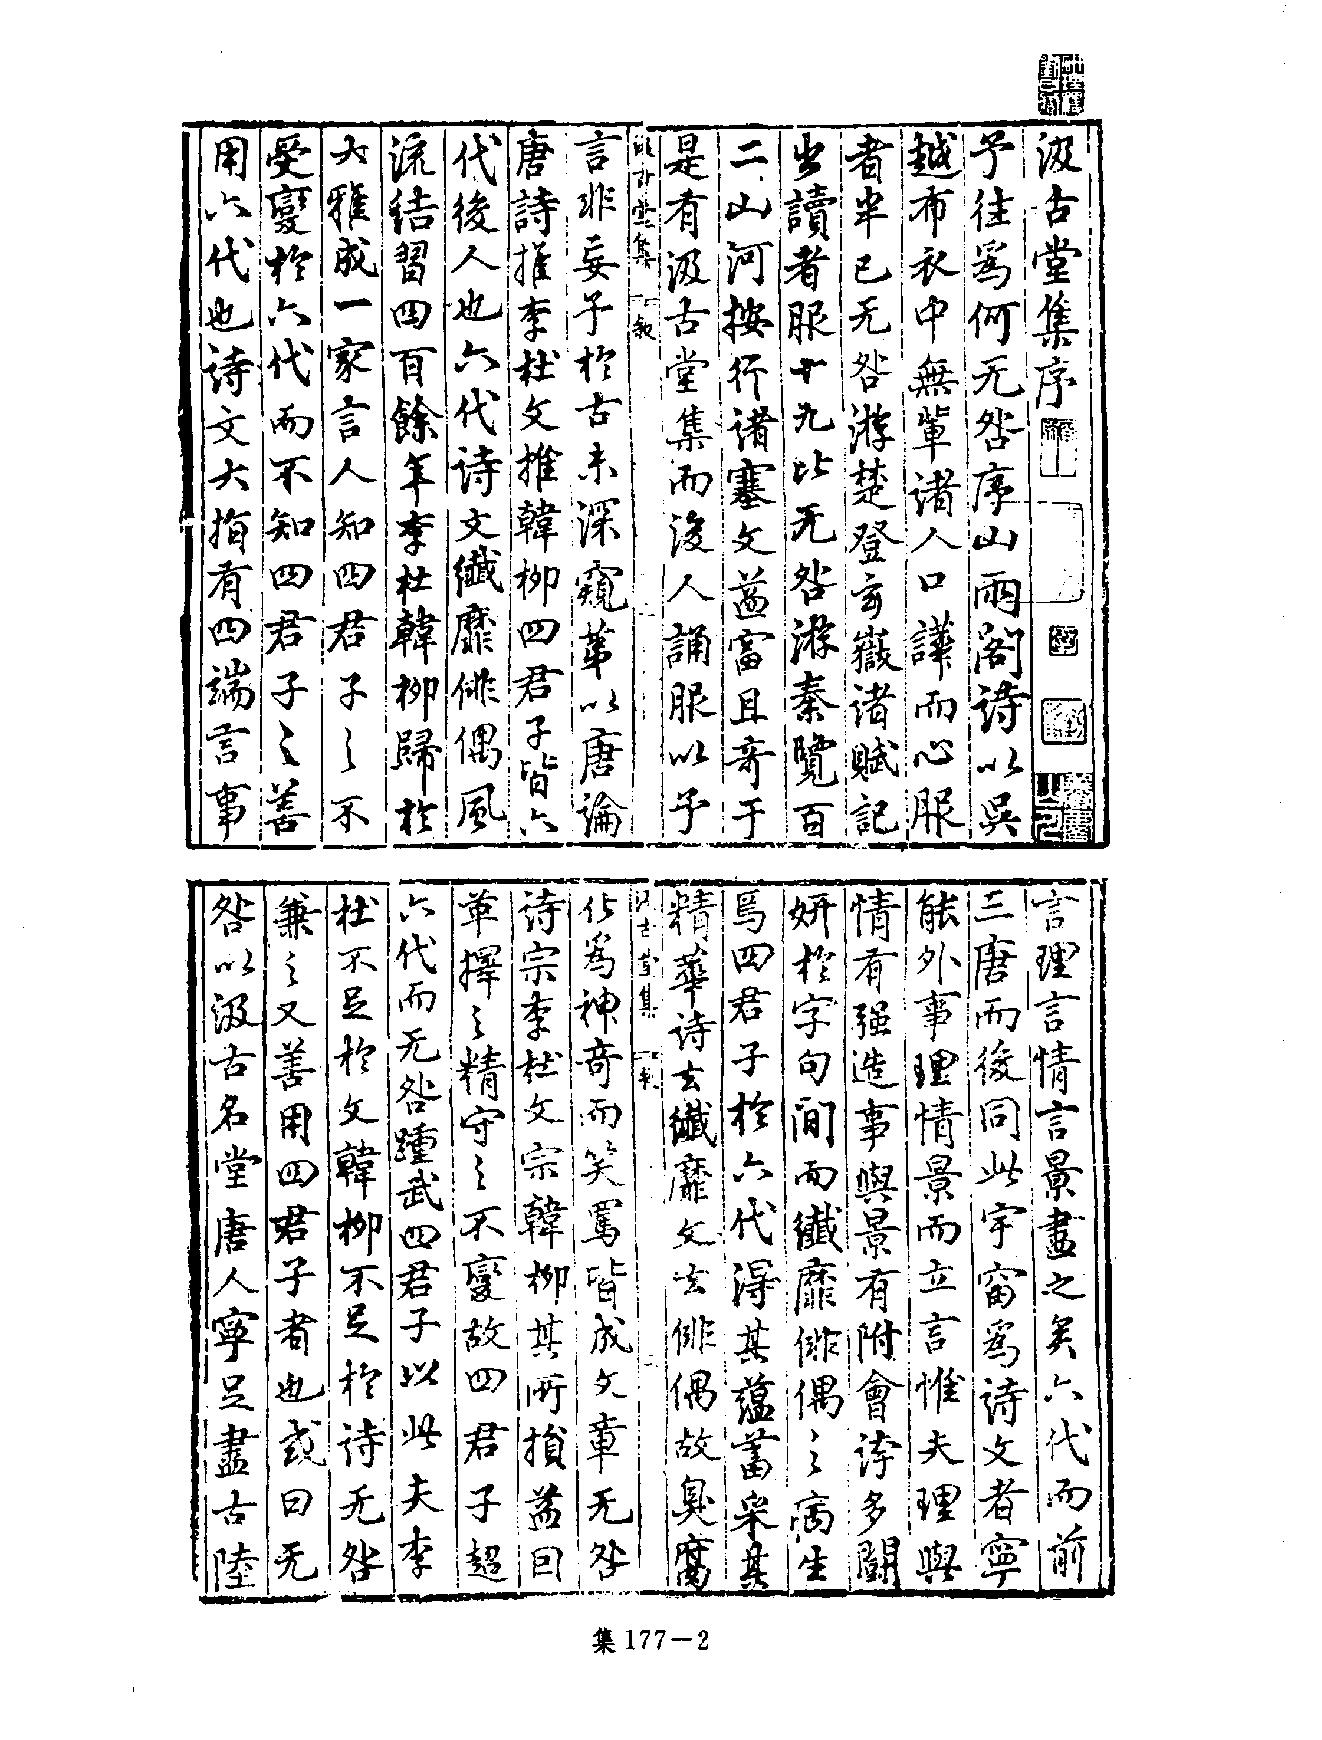 汲古堂集序
予往爲何无咎序山雨閣詩以吳
越布衣中無輩諸人口譁而心服
者半已无咎游楚登玄嶽諸賦記
出讀者服十九比无咎游秦覽百
二山河按行諸塞文益富且奇于
是有汲古堂集而後人誦服以予
言非妄予於古未深窺第以唐論
唐詩推李杜文推韓柳四君子皆六
代後人也六代詩文纖靡俳偶風
流結習四百餘年李杜韓柳歸於
大雅成一家言人知四君子之不
受變於六代而不知四君子之善
用六代也詩文大指有四端言事
言理言情言景盡之矣六代而前
三唐而後同此宇宙爲詩文者寧
能外事理情景而立言惟夫理與
情有强造事與景有附會詩多鬪
妍於字句間而纖靡俳偶之病生
焉四君子於六代得其蘊蓄采其
精華詩去纖靡文去俳偶故臭腐
化爲神奇而笑罵皆成文章无咎
詩宗李杜文宗韓柳其所損益曰
革擇之精守之不變故四君子超
六代而无咎踵武四君子以此夫李
杜不足於文韓柳不足於詩无咎
兼之又善用四君子者也或曰无
咎以汲古名堂唐人寧足盡古陸
汲古堂集
集 177－2